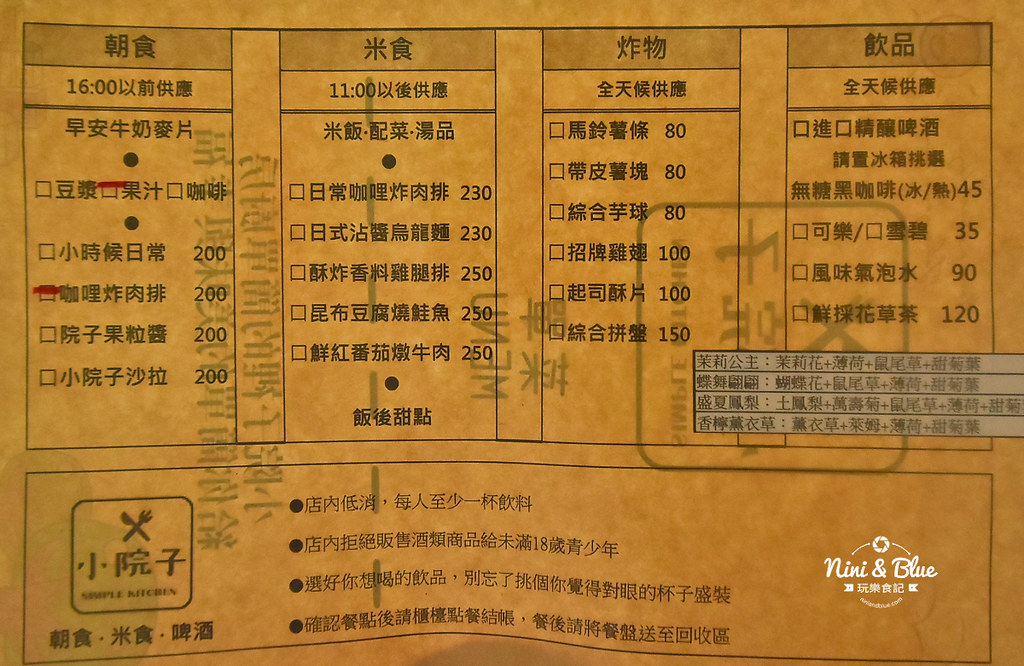 朝食
16:00以前供應
早安牛奶麥片
●
□豆漿□果汁□咖啡
●
□小時候日常 200
□咖哩炸肉排 200
□院子果粒醬 200
□小院子沙拉 200
米食
11:00以後供應
米飯·配菜·湯品
●
□日常咖哩炸肉排 230
□日式沾醬烏龍麵 230
□酥炸香料雞腿排 250
□昆布豆腐燒鮭魚 250
□鮮紅番茄燉牛肉 250
●
飯後甜點
炸物
全天候供應
□馬鈴薯條 80
□帶皮薯塊 80
□綜合芋球 80
□招牌雞翅 100
□起司酥片 100
□綜合拼盤 150
飲品
全天候供應
□進口精釀啤酒
請置冰箱挑選
無糖黑咖啡(冰/熱)45
□可樂/□雪碧 35
□風味氣泡水 90
□鮮採花草茶 120
茉莉公主：茉莉花+薄荷+鼠尾草+甜菊葉
蝶舞翩翩：蝴蝶花+鼠尾草+薄荷+甜菊葉
盛夏鳳梨：土鳳梨+萬壽菊+鼠尾草+薄荷+甜菊
香檸薰衣草：薰衣草+萊姆+薄荷+甜菊葉
小院子
SIMPLE KITCHEN
朝食·米食·啤酒
●店內低消，每人至少一杯飲料
●店內拒絕販售酒類商品給未滿18歲青少年
●選好你想喝的飲品，別忘了挑個你覺得對眼的杯子盛裝
●確認餐點後請櫃檯點餐結帳，餐後請將餐盤送至回收區
MENU
菜單
Nini & Blue
玩樂食記
niniandblue.com